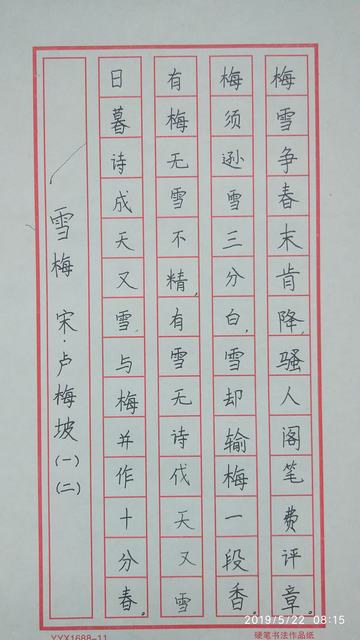 梅雪争春末肯降,骚人阁笔费评章。
梅须逊雪三分白,雪却输梅一段香。
有梅无雪不精,有雪无诗伐天又雪
日暮诗成天又雪,与梅并作十分春。
雪梅 宋·卢梅坡(一)(二)
2019/5/22 08:15
YYX1688-11 硬笔书法作品纸